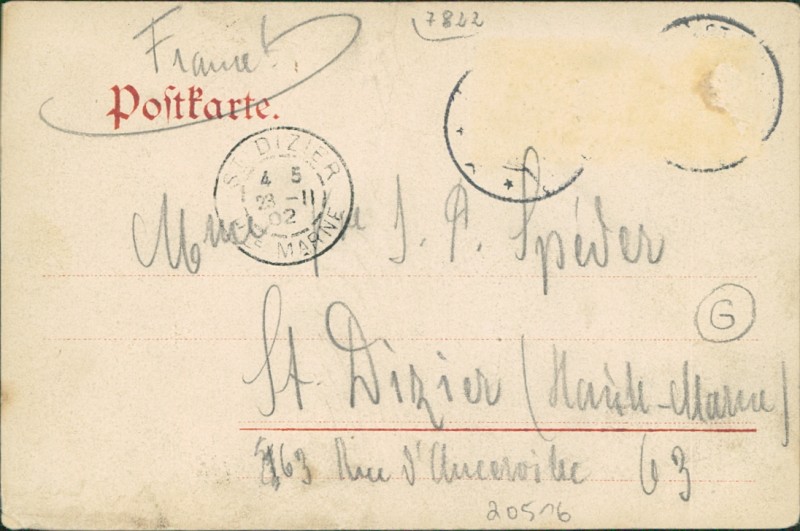 7822
France
Postkarte.
ST DIZIER
4 5
23 -11
02
HTE MARNE
Mme J. P. Spéder
G
St. Dizier (Haute-Marne)
63 Rue d'Ancerville 63
20516